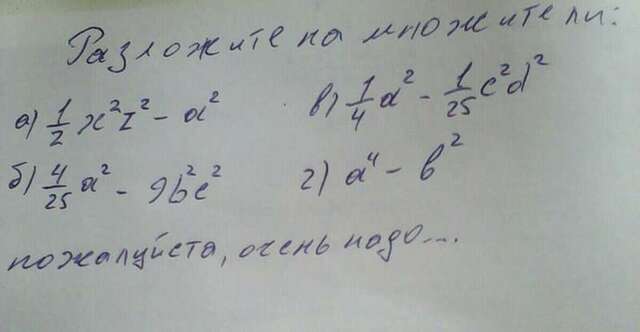 Разложите на множители:
а) 1/2 x²z² - a² в) 1/4 a² - 1/25 c²d²
б) 4/25 a² - 9b²c² г) a⁴ - b²
пожалуйста, очень надо...